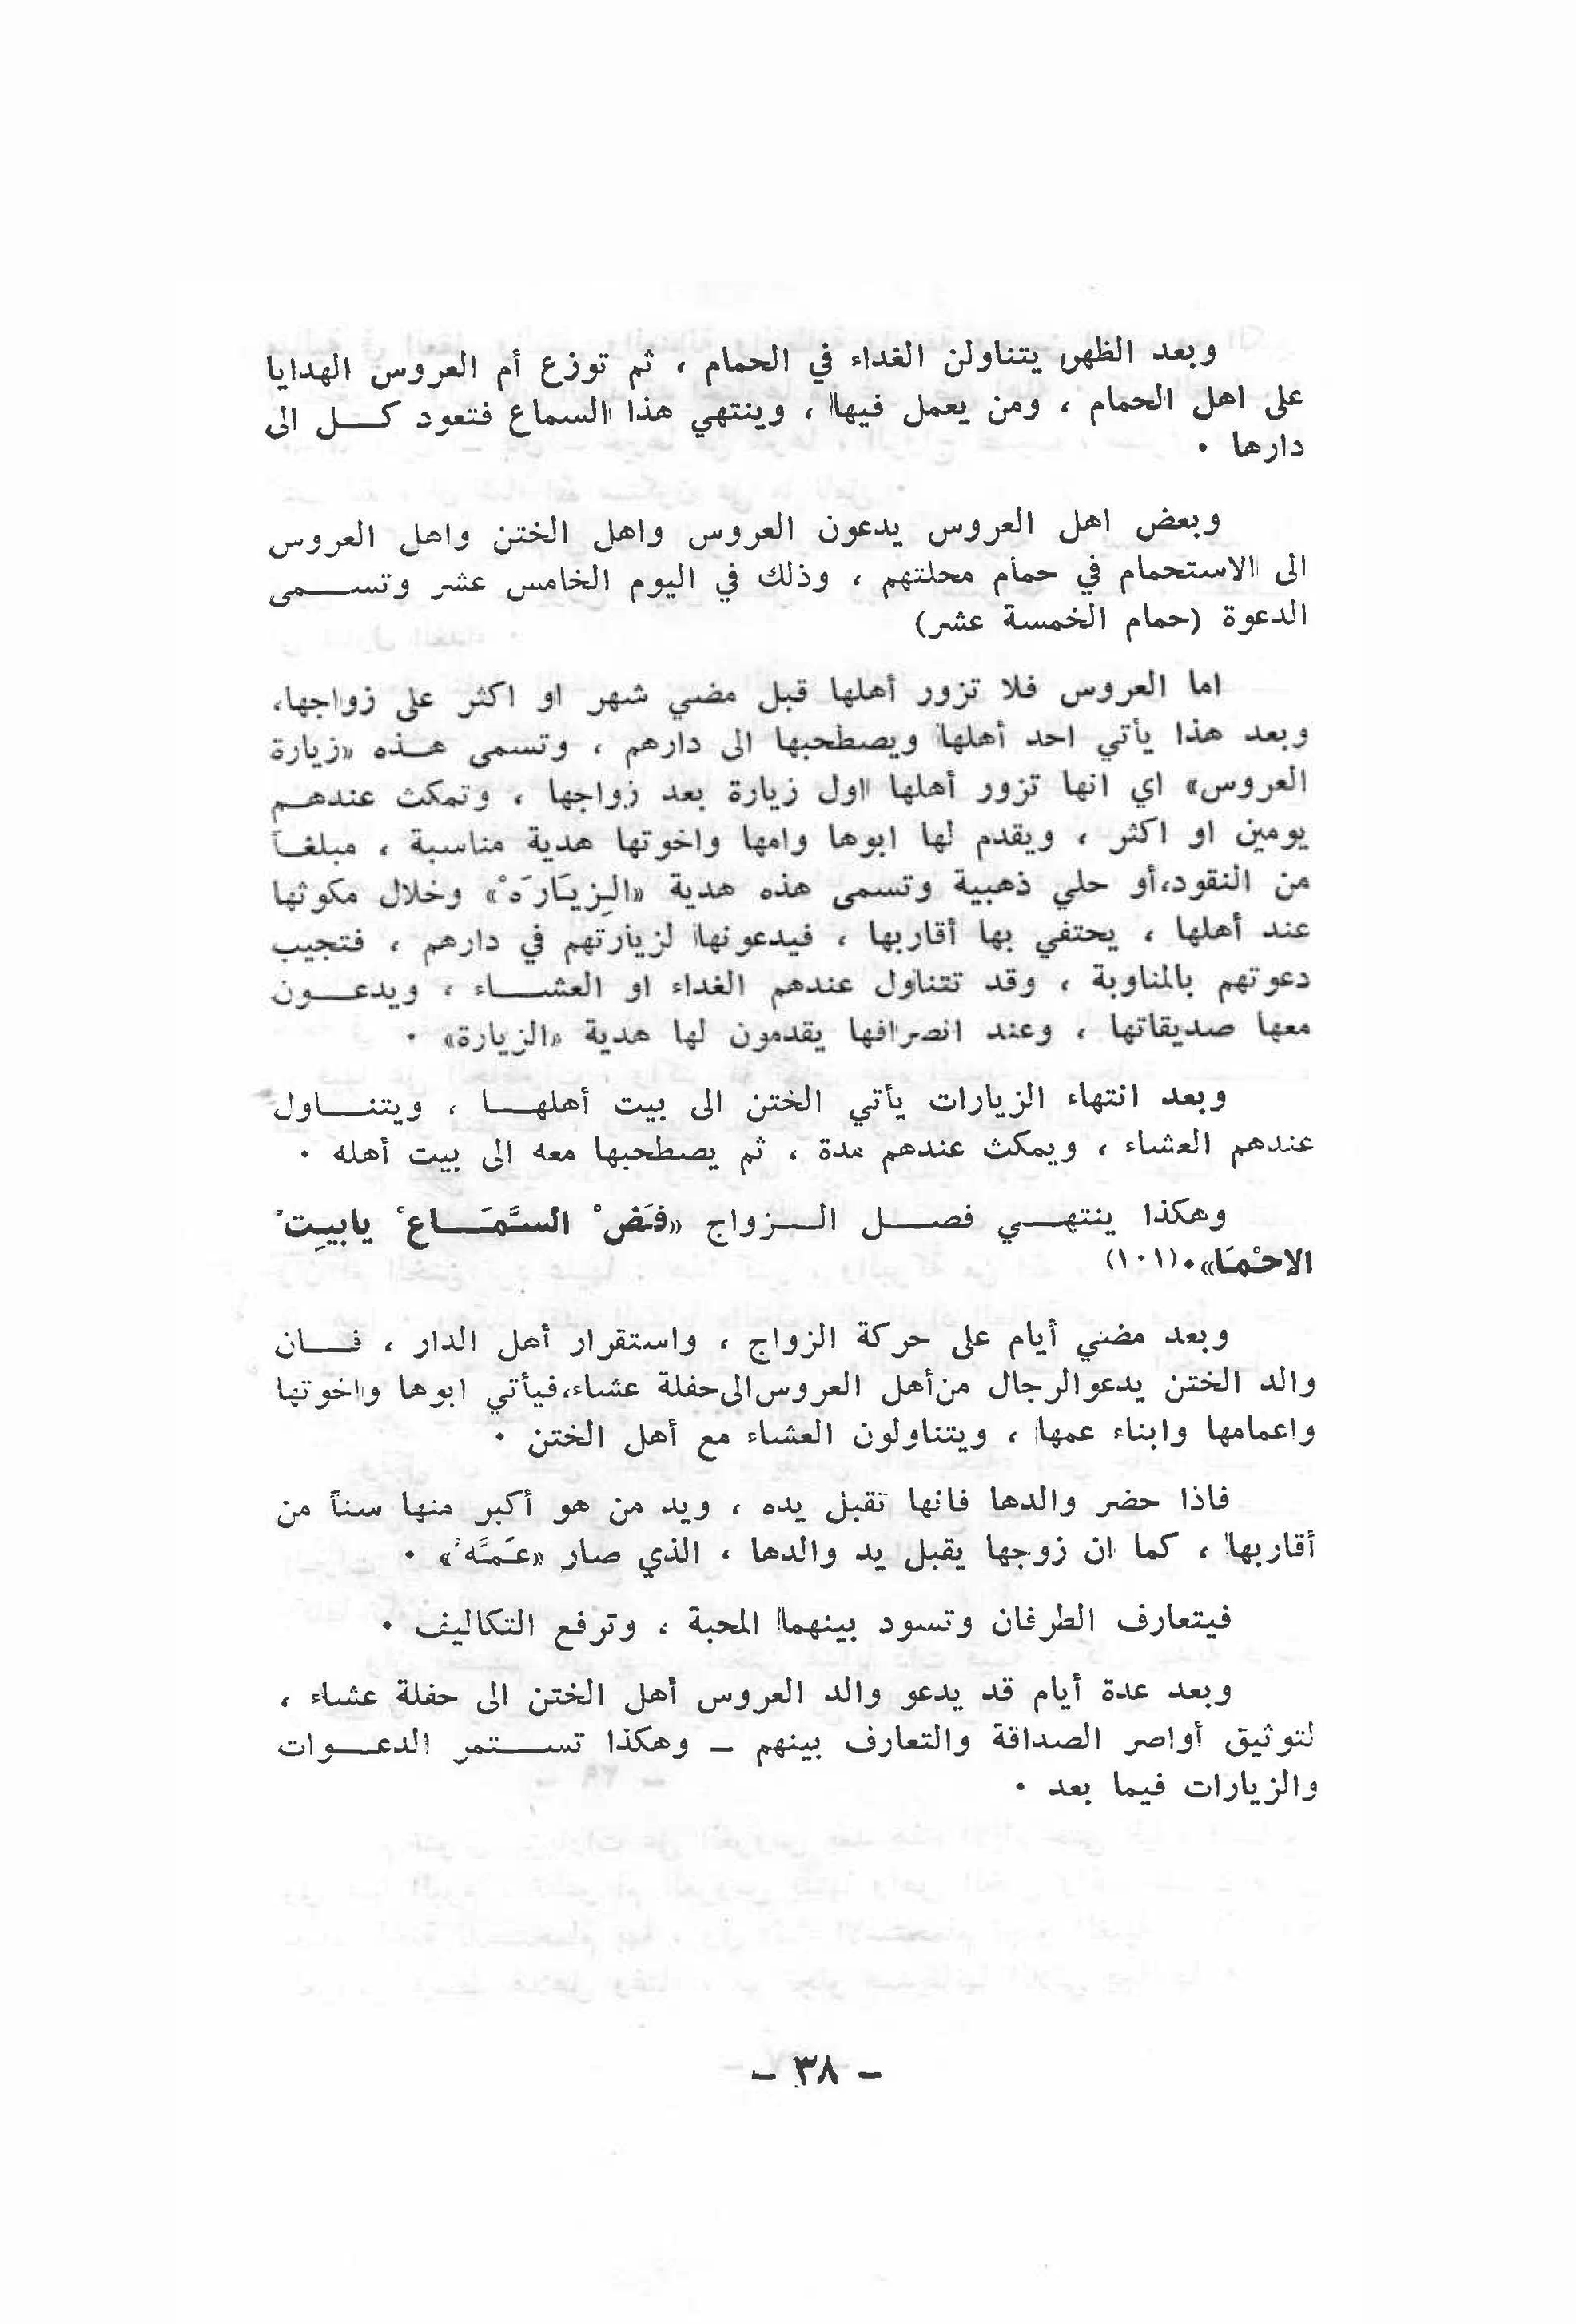 وبعد الظهر يتناولن الغداء في الحمام ، ثم توزع أم العروس الهدايا
على اهل الحمام ، ومن يعمل فيها ، وينتهي هذا السماع فتعود كل الى
دارها ٠
وبعض اهل العروس يدعون العروس واهل الختن واهل العروس
الى الاستحمام في حمام محلتهم ، وذلك في اليوم الخامس عشر وتسمى
الدعوة (حمام الخمسة عشر)
اما العروس فلا تزور أهلها قبل مضي شهر او اكثر على زواجها،
وبعد هذا يأتي احد أهلها ويصطحبها الى دارهم ، وتسمى هذه «زيارة
العروس» اي انها تزور أهلها اول زيارة بعد زواجها ، وتمكث عندهم
يومين او اكثر ، ويقدم لها ابوها وامها واخوتها هدية مناسبة ، مبلغاً
من النقود،أو حلي ذهبية وتسمى هذه هدية «الزِيَارَهْ» وخلال مكوثها
عند أهلها ، يحتفي بها أقاربها ، فيدعونها لزيارتهم في دارهم ، فتجيب
دعوتهم بالمناوبة ، وقد تتناول عندهم الغداء او العشاء ، ويدعون
معها صديقاتها ، وعند انصرافها يقدمون لها هدية «الزيارة» ٠
وبعد انتهاء الزيارات يأتي الختن الى بيت أهلها ، ويتناول
عندهم العشاء ، ويمكث عندهم مدة ، ثم يصطحبها معه الى بيت أهله ٠
وهكذا ينتهي فصل الزواج «فَضْ السَّمَاعْ يابيِتْ
الاحْمَا»٠(١٠١)
وبعد مضي أيام على حركة الزواج ، واستقرار أهل الدار ، فان
والد الختن يدعو الرجال من أهل العروس الى حفلة عشاء،فيأتي ابوها واخوتها
واعمامها وابناء عمها ، ويتناولون العشاء مع أهل الختن ٠
فاذا حضر والدها فانها تقبل يده ، ويد من هو أكبر منها سناً من
أقاربها ، كما ان زوجها يقبل يد والدها ، الذي صار «عَمَّه» ٠
فيتعارف الطرفان وتسود بينهما المحبة ، وترفع التكاليف ٠
وبعد عدة أيام قد يدعو والد العروس أهل الختن الى حفلة عشاء ،
لتوثيق أواصر الصداقة والتعارف بينهم ــ وهكذا تستمر الدعوات
والزيارات فيما بعد ٠
- ٣٨ -